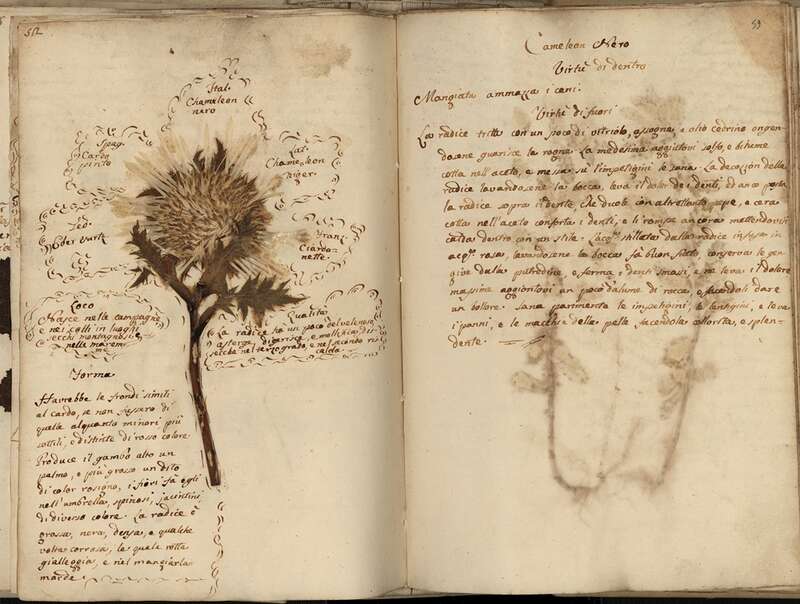 52
Ital.
Chameleon
nero
Spag.
Cardo
pinto
Lat.
Chameleon
niger
Ted.
Eber Wurtz
Franz.
Ciardo-
nette
Loco
Nasce nelle campagne
nei colli in luoghi
secchi montagnosi, e
nelle marem̃e
Qualità
La radice ha un poco del velenoso
asterge, digerisce, e mollifica, dis-
secca nel terzo grado, e nel secondo ris-
calda
Forma
Havrebbe le frondi simili
al cardo, se non fussero di
quele alquanto minori più
sottili, e distinte di rosso colore
Produce il gambo alto un
palmo, e più grosso un dito
di color rosigno, i fiori fà egli
nell'ombrella, spinosi, jacintini
di diverso colore. La radice è
grossa, nera, densa, e qualche
volta corrosa, le quale rotta
gialleggia, e nel mangiarla
morde
53
Cameleon Nero
Virtù di dentro
Mangiata ammazza i cani.
Virtù di fuori
La radice trita con un poco di vitriolo, assogna, e olio cedrino ongen-
dosene guarisce la rogna. La medesima aggiontovi solfo, e bitume
cotta nell'aceto, e messa sù l'impetigini le sana. La decozion della
radice lavandosene la bocca, leva il dolor dei denti, ed anco posta
la radice sopra il dente che duole con altrettanto pepe, e cera
cotta nell'aceto conforta i denti, e li rompe ancora mettendovisi
calda dentro con un stile. L'acqᵃ. stillata dalla radice infusa in
acqᵃ. rosa, lavandosene la bocca fà buon fiato, conserva le gen-
give dalla putredine, e ferma i denti smossi, e ne leva il dolore
massime aggiontovi un poco d'alume di rocca, e facendoli dare
un bollore. Sana parimente le impetigini, le lentigini, e leva
i panni, e le macchie della pelle facendola colorita, e splen-
dente.